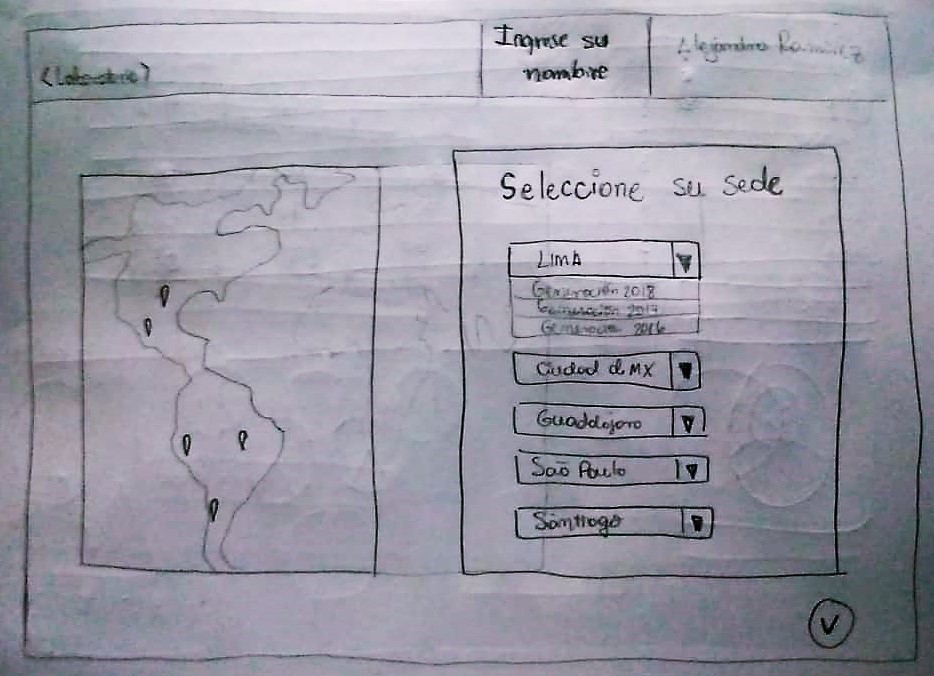 <Laboratoria>
Ingrese su
nombre
Alejandra Ramírez
Seleccione su sede
LIMA
Generación 2018
Generación 2017
Generación 2016
Ciudad d MX
Guadalajara
São Paulo
Santiago
V